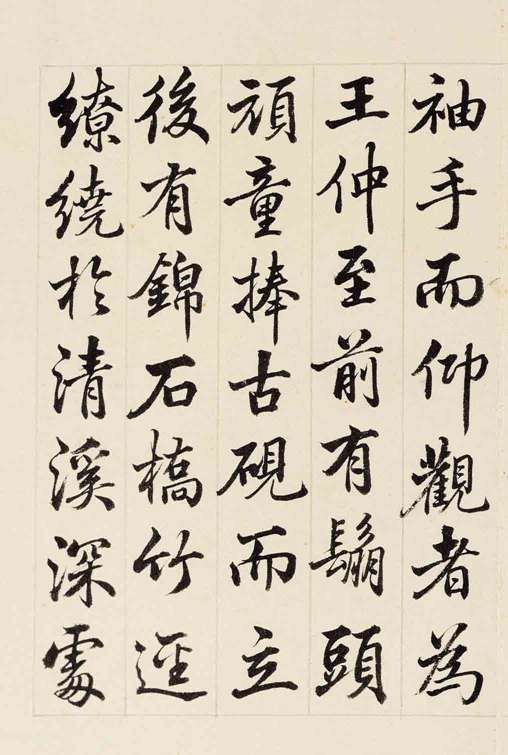 袖手而仰觀者為
王仲至前有鬅頭
頑童捧古硯而立
後有錦石橋竹逕
繚繞於清溪深處